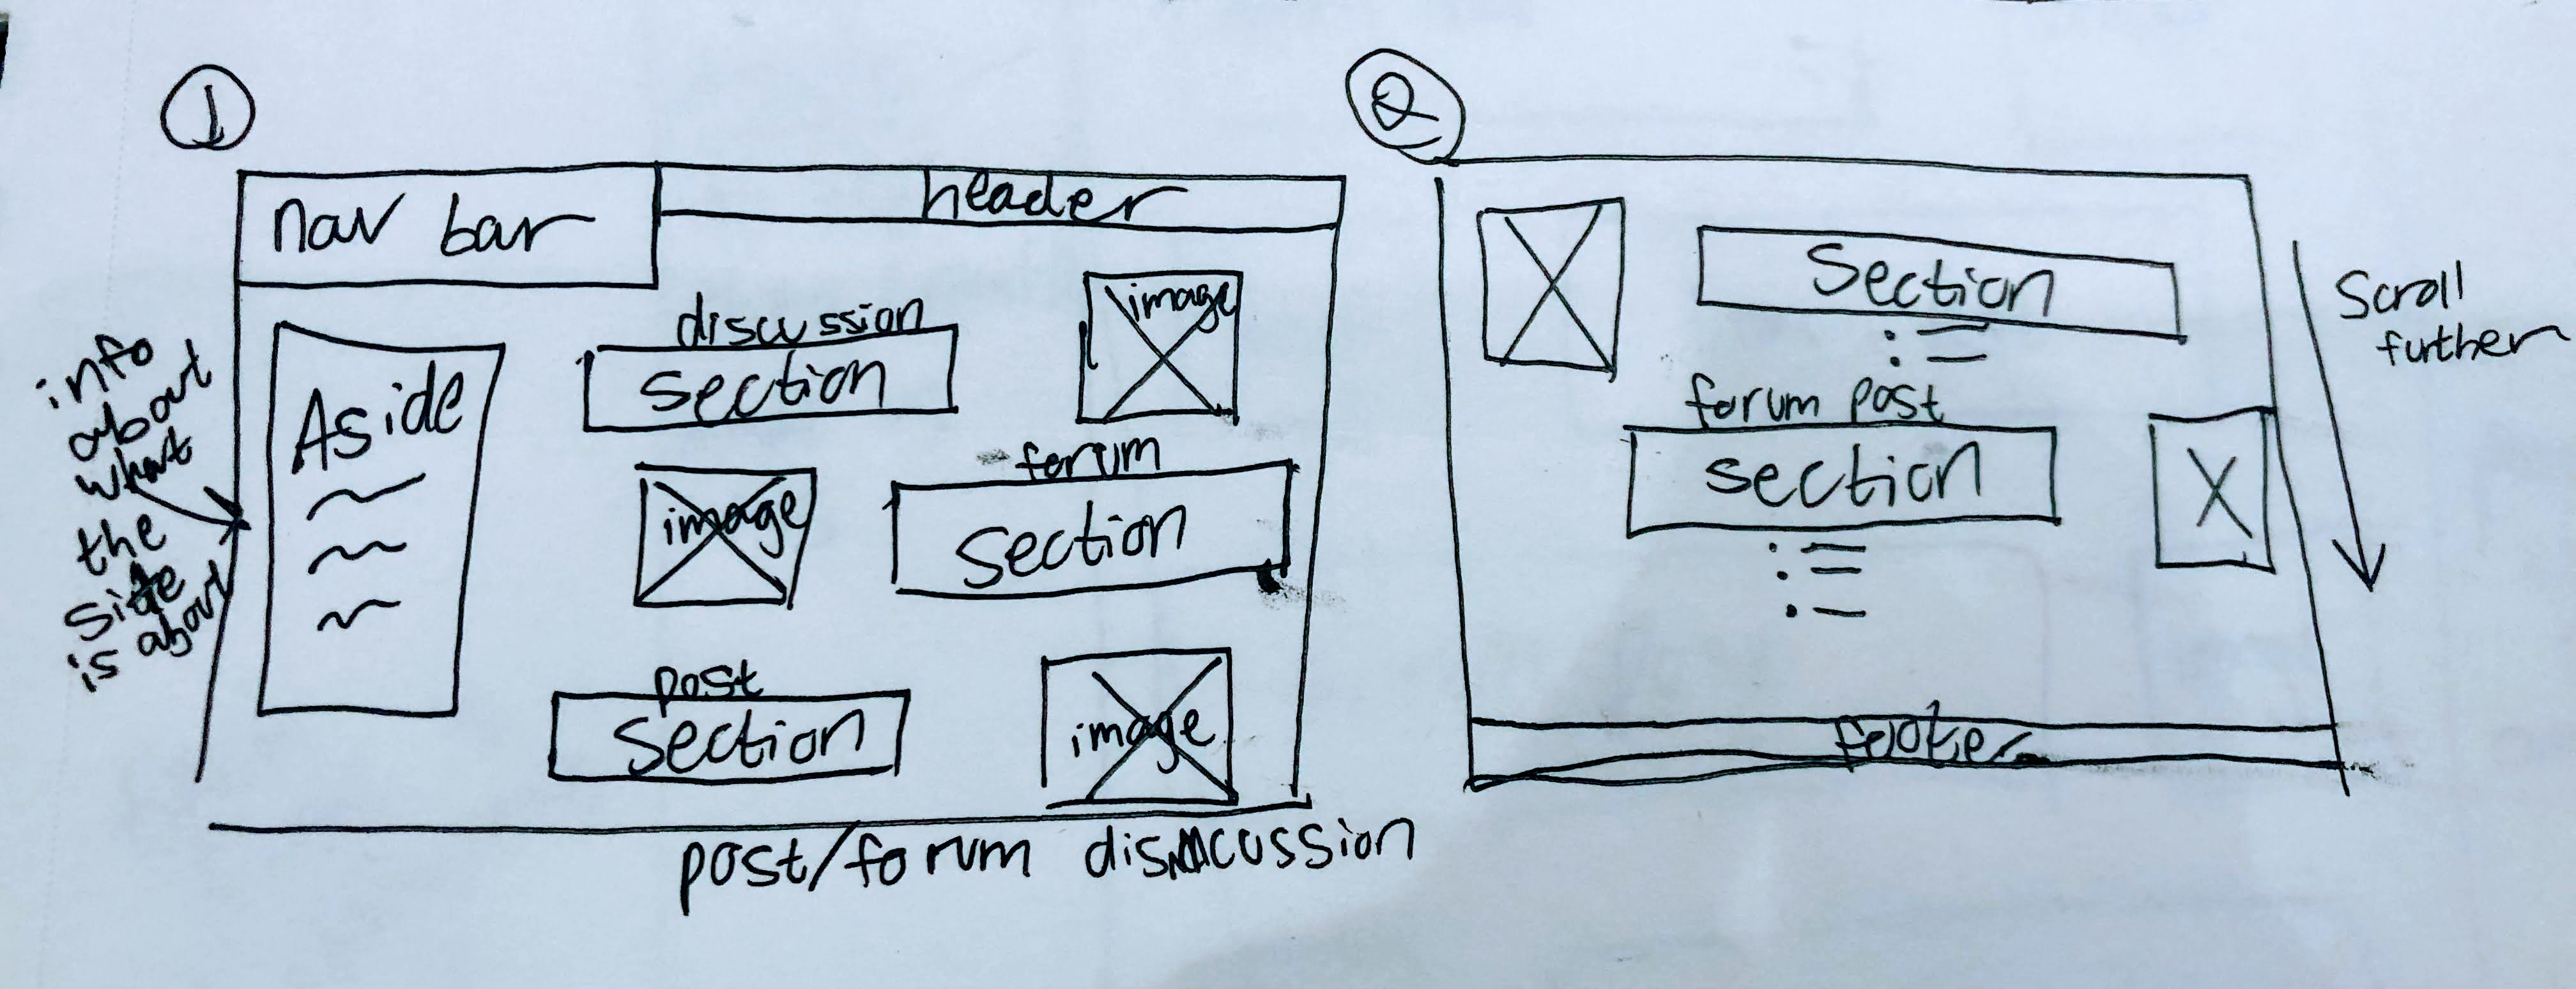 1
nav bar
header
info
about
what
the
site
is about
Aside
discussion
section
image
image
forum
section
post
section
image
post/forum discussion
2
Section
forum post
section
footer
Scroll
further